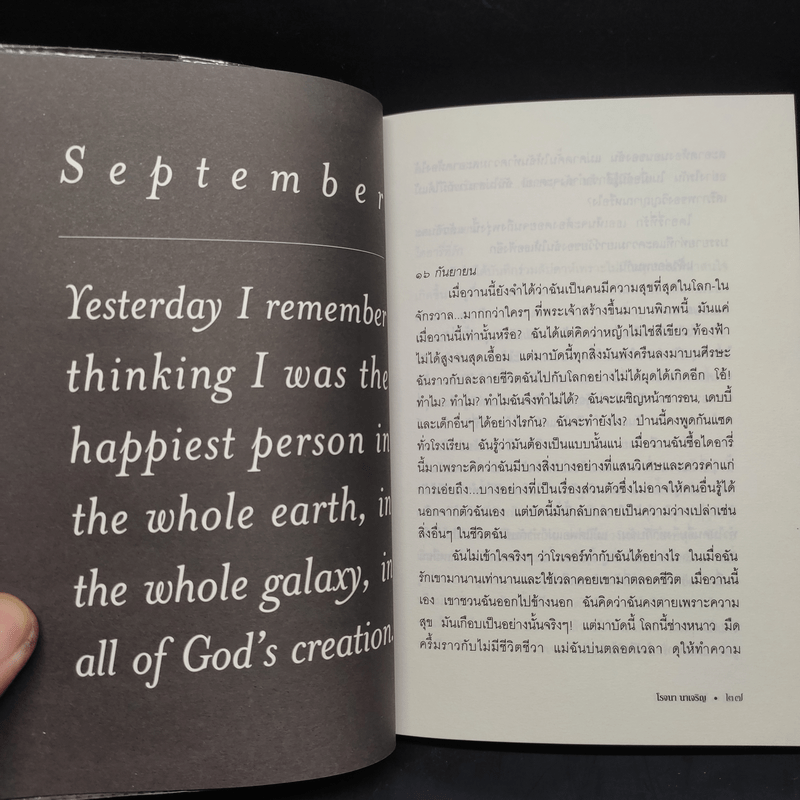 September
Yesterday I remember
thinking I was the
happiest person in
the whole earth, in
the whole galaxy, in
all of God's creation.
๑๖ กันยายน
เมื่อวานนี้ยังจำได้ว่าฉันเป็นคนมีความสุขที่สุดในโลก-ใน
จักรวาล...มากกว่าใครๆ ที่พระเจ้าสร้างขึ้นมาบนพิภพนี้ มันแค่
เมื่อวานนี้เท่านั้นหรือ? ฉันได้แต่คิดว่าหญ้าไม่ใช่สีเขียว ท้องฟ้า
ไม่ได้สูงจนสุดเอื้อม แต่มาบัดนี้ทุกสิ่งมันพังครืนลงมาบนศีรษะ
ฉันราวกับละลายชีวิตฉันไปกับโลกอย่างไม่ได้ผุดได้เกิดอีก โอ้!
ทำไม? ทำไม? ทำไมฉันจึงทำไม่ได้? ฉันจะเผชิญหน้าชารอน, เดบบี้
และเด็กอื่นๆ ได้อย่างไรกัน? ฉันจะทำยังไง? ป่านนี้คงพูดกันแซด
ทั่วโรงเรียน ฉันรู้ว่ามันต้องเป็นแบบนั้นแน่ เมื่อวานฉันซื้อไดอารี่
นี้มาเพราะคิดว่าฉันมีบางสิ่งบางอย่างที่แสนวิเศษและควรค่าแก่
การเอ่ยถึง...บางอย่างที่เป็นเรื่องส่วนตัวซึ่งไม่อาจให้คนอื่นรู้ได้
นอกจากตัวฉันเอง แต่บัดนี้มันกลับกลายเป็นความว่างเปล่าเช่น
สิ่งอื่นๆ ในชีวิตฉัน
ฉันไม่เข้าใจจริงๆ ว่าโรเจอร์ทำกับฉันได้อย่างไร ในเมื่อฉัน
รักเขามานานเท่านานและใช้เวลาคอยเขามาตลอดชีวิต เมื่อวานนี้
เอง เขาชวนฉันออกไปข้างนอก ฉันคิดว่าฉันคงตายเพราะความ
สุข มันเกือบเป็นอย่างนั้นจริงๆ! แต่มาบัดนี้ โลกนี้ช่างหนาว มืด
ครึ้มราวกับไม่มีชีวิตชีวา แม่ฉันบ่นตลอดเวลา ดุให้ทำความ
โรจนา นาเจริญ • ๒๗